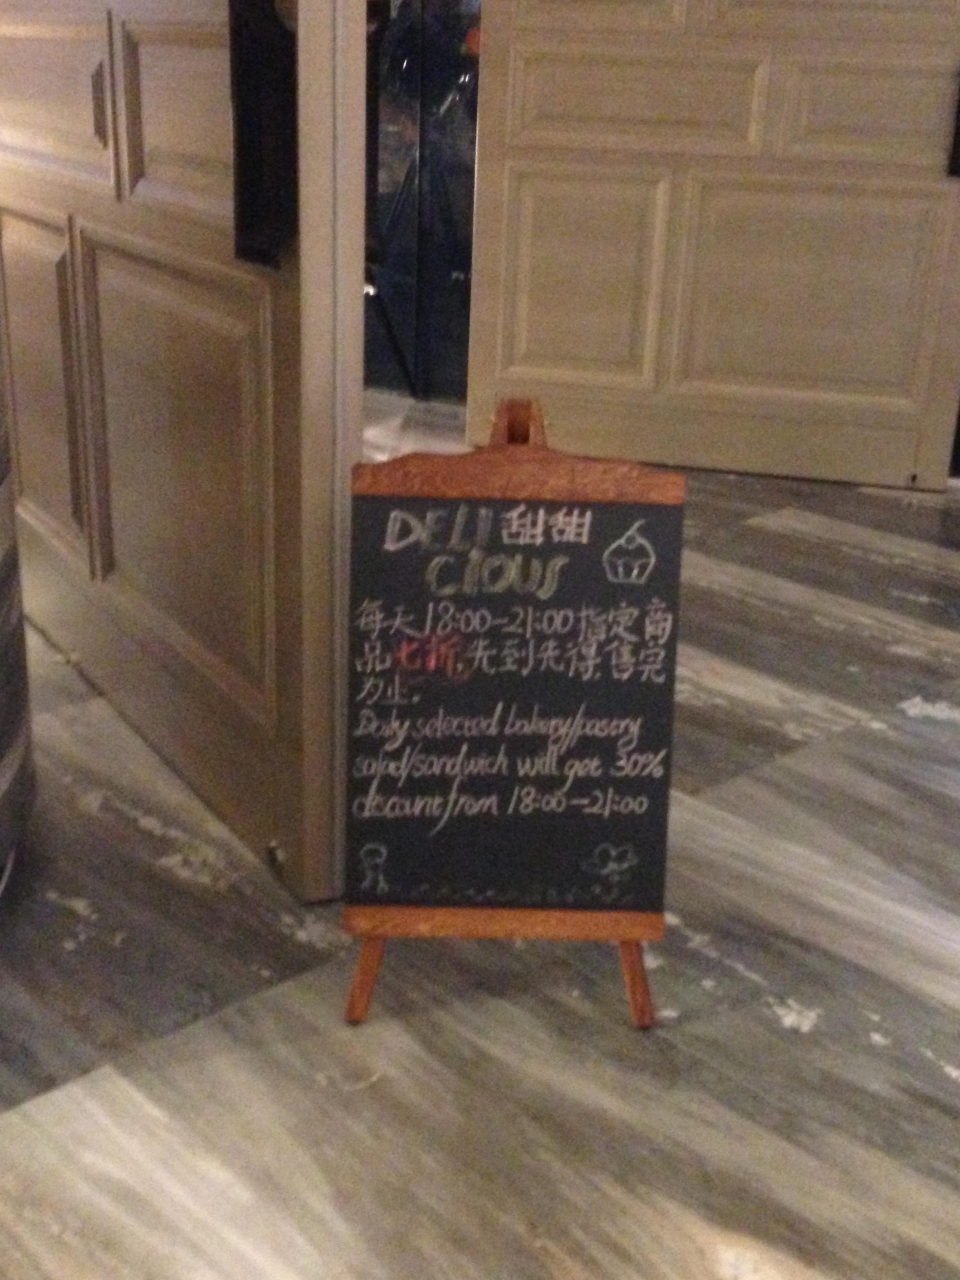 DELI 甜甜
CIOUS
每天18:00-21:00指定商
品七折,先到先得,售完
为止.
Daily selected bakery/pastry
salad/sandwich will get 30%
discount from 18:00-21:00